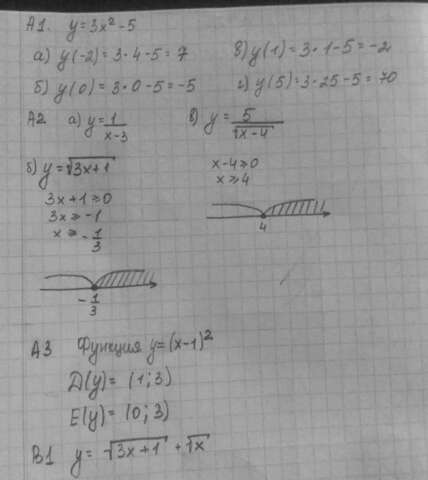 A1. y=3x²-5
а) y(-2)=3·4-5=7
в) y(1)=3·1-5=-2
б) y(0)=3·0-5=-5
г) y(5)=3·25-5=70
A2 а) y=1/(x-3)
в) y=5/√(x-4)
б) y=√(3x+1)
3x+1≥0
3x≥-1
x≥-1/3
x-4≥0
x≥4
4
-1/3
A3 Функция y=(x-1)²
D(y)=(1;3)
E(y)=(0;3)
B1 y=√(3x+1)+√x